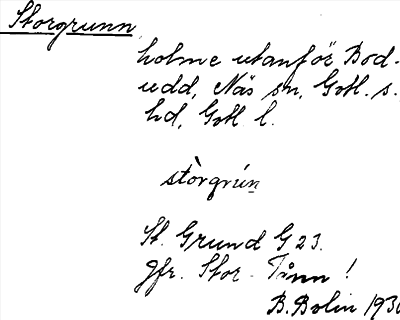 Storgrunn
holme utanför Bod-
udd, Näs sn, Gotl. s.
hd, Gotl l.
stòrgrún
St. Grund G 23.
Jfr. Stor-Tånn!
B. Bolin 1930